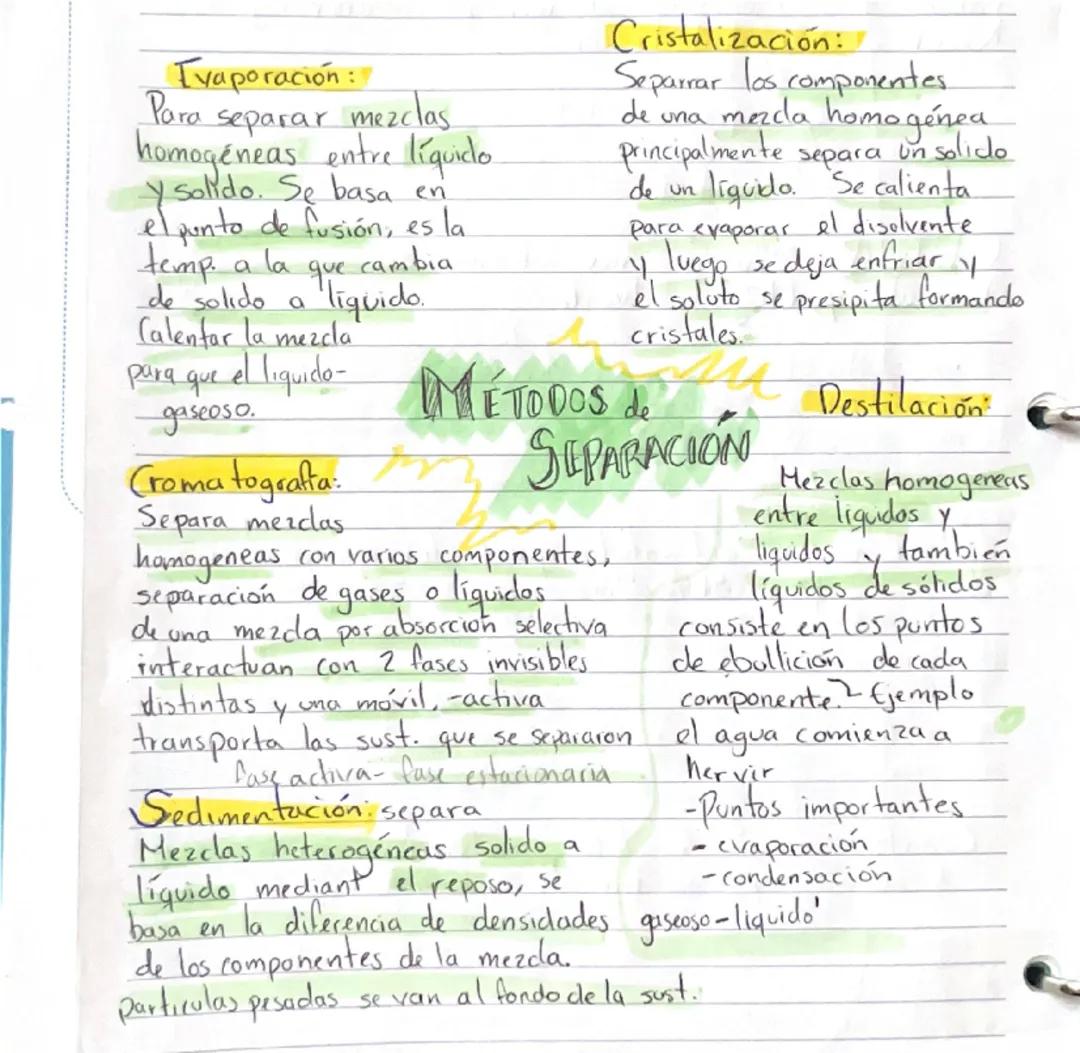 Evaporación:
Para separar mezclas
homogéneas entre líquido
y solido. Se basa en
el punto de fusión, es la
temp. a la que cambia
de solido a líquido.
Calentar la mezcla
para que el liquido-
gaseoso.
Cristalización:
Separrar los componentes
de una mezcla homogénea
principalmente separa un solido
de un líquido. Se calienta
para evaporar el disolvente
y luego se deja enfriar y
el soluto se presipita formando
cristales.
MÉTODOS de
SEPARACIÓN
Cromatografía:
Separa mezclas
homogeneas con varios componentes,
separación de gases o líquidos
de una mezcla por absorción selectiva
interactuan con 2 fases invisibles
distintas y una móvil, -activa
transporta las sust. que se separaron
fase activa- fase estacionaria
Sedimentación: separa
Mezclas heterogéneas solido a
líquido mediant el reposo, se
basa en la diferencia de densidades
de los componentes de la mezcla.
particulas pesadas se van al fondo de la sust.
Destilación:
Mezclas homogeneas
entre líquidos y
liquidos y también
líquidos de sólidos
consiste en los puntos
de ebullición de cada
componente. Ejemplo
el agua comienza a
hervir
-Puntos importantes
- evaporación
- condensación
gaseoso-liquido